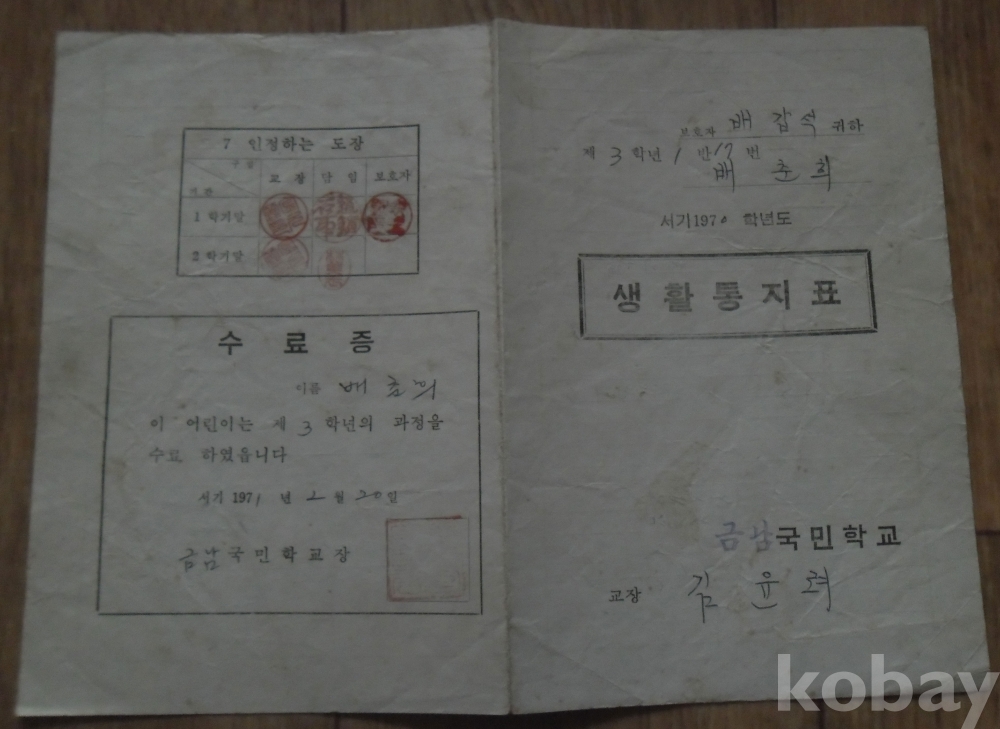 7 인정하는 도장
구분
교장 담임 보호자
기간
1 학기말
2 학기말
수료증
이름 배춘희
이 어린이는 제 3 학년의 과정을
수료 하였읍니다
서기 1971 년 2 월 20 일
금남국민학교장
보호자 배갑석 귀하
제 3 학년 1 반 17 번
배춘희
서기1970 학년도
생활통지표
금남국민학교
교장 김윤
kobay